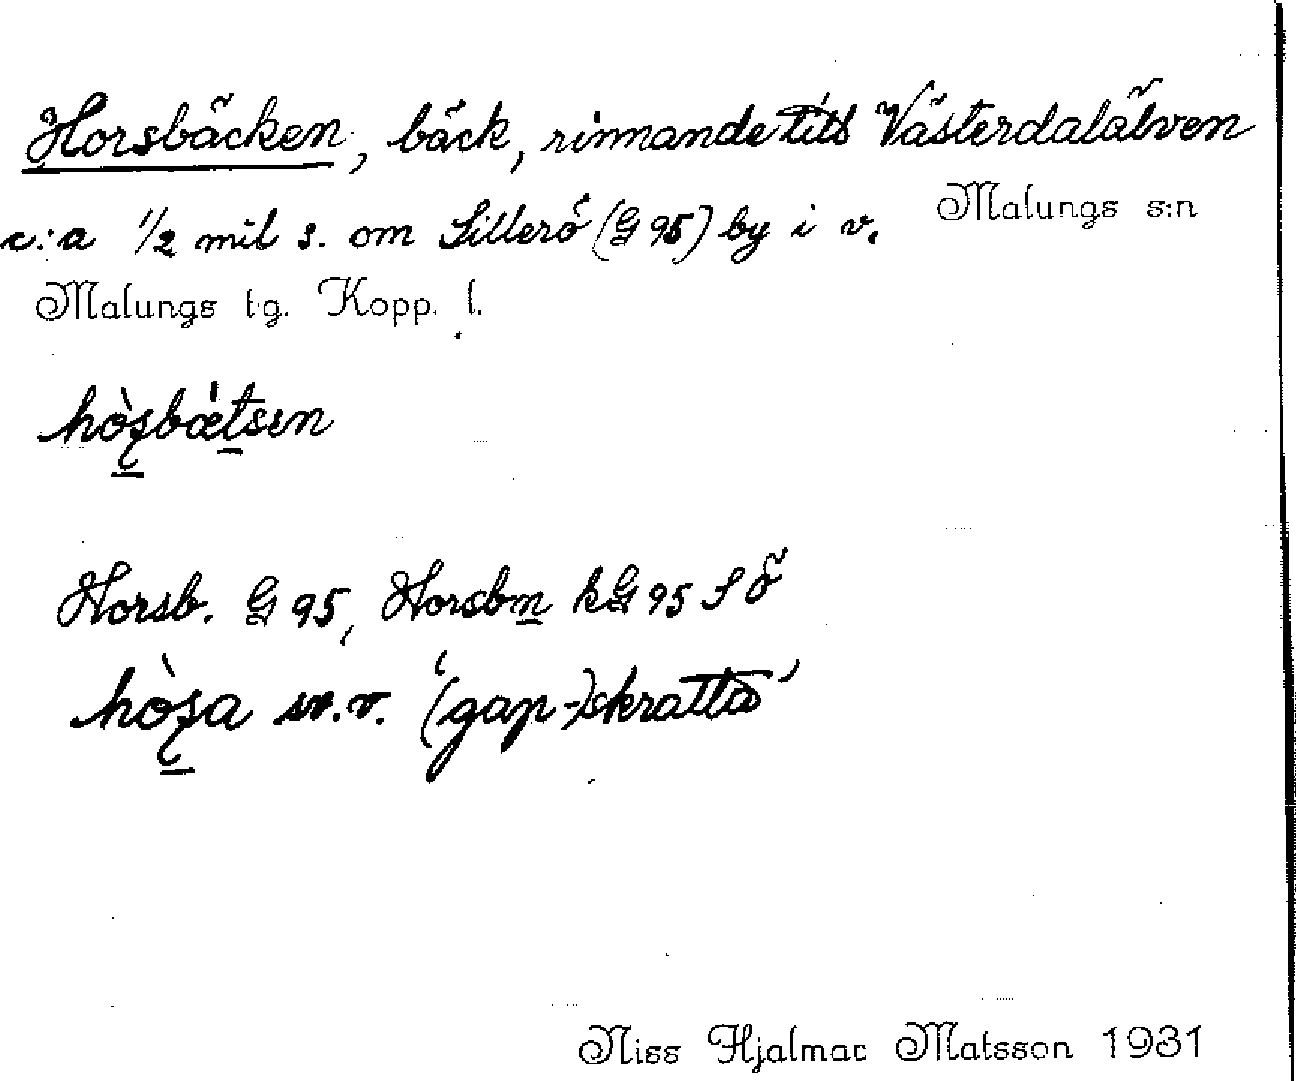 Horsbäcken, bäck, rinnande till Västerdalälven
c:a 1/2 mil s. om Sillerö (G 95) by i v.
Malungs s:n
Malungs tg. Kopp. l.
hòʂbǽtsɪn
Horsb. G 95, Horsbm kG 95 S Ö
hòʂa sv.v. '(gap-)skratta'
Niss Hjalmar Matsson 1931